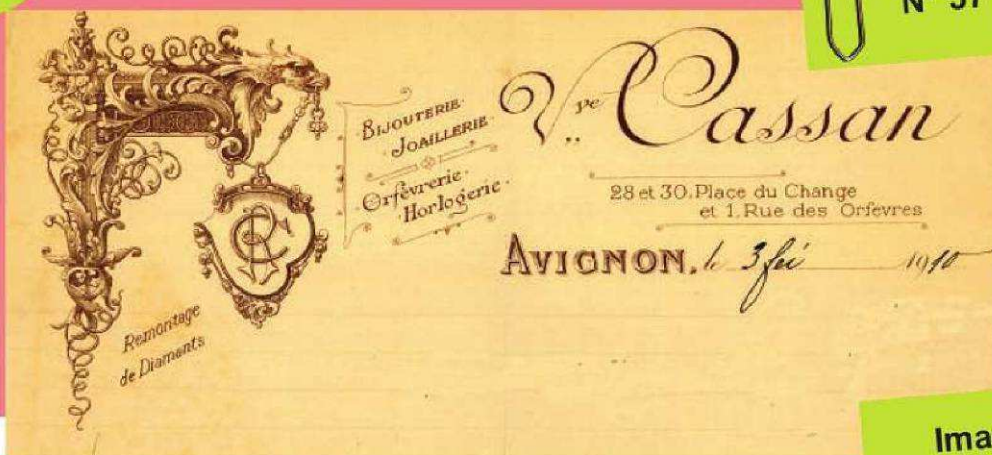 N° 37
BIJOUTERIE
JOAILLERIE
Orfèvrerie
Horlogerie
Vve Cassan
28 et 30. Place du Change
et 1. Rue des Orfevres
AVIGNON, le 3 1910
Remontage
de Diamants
Ima